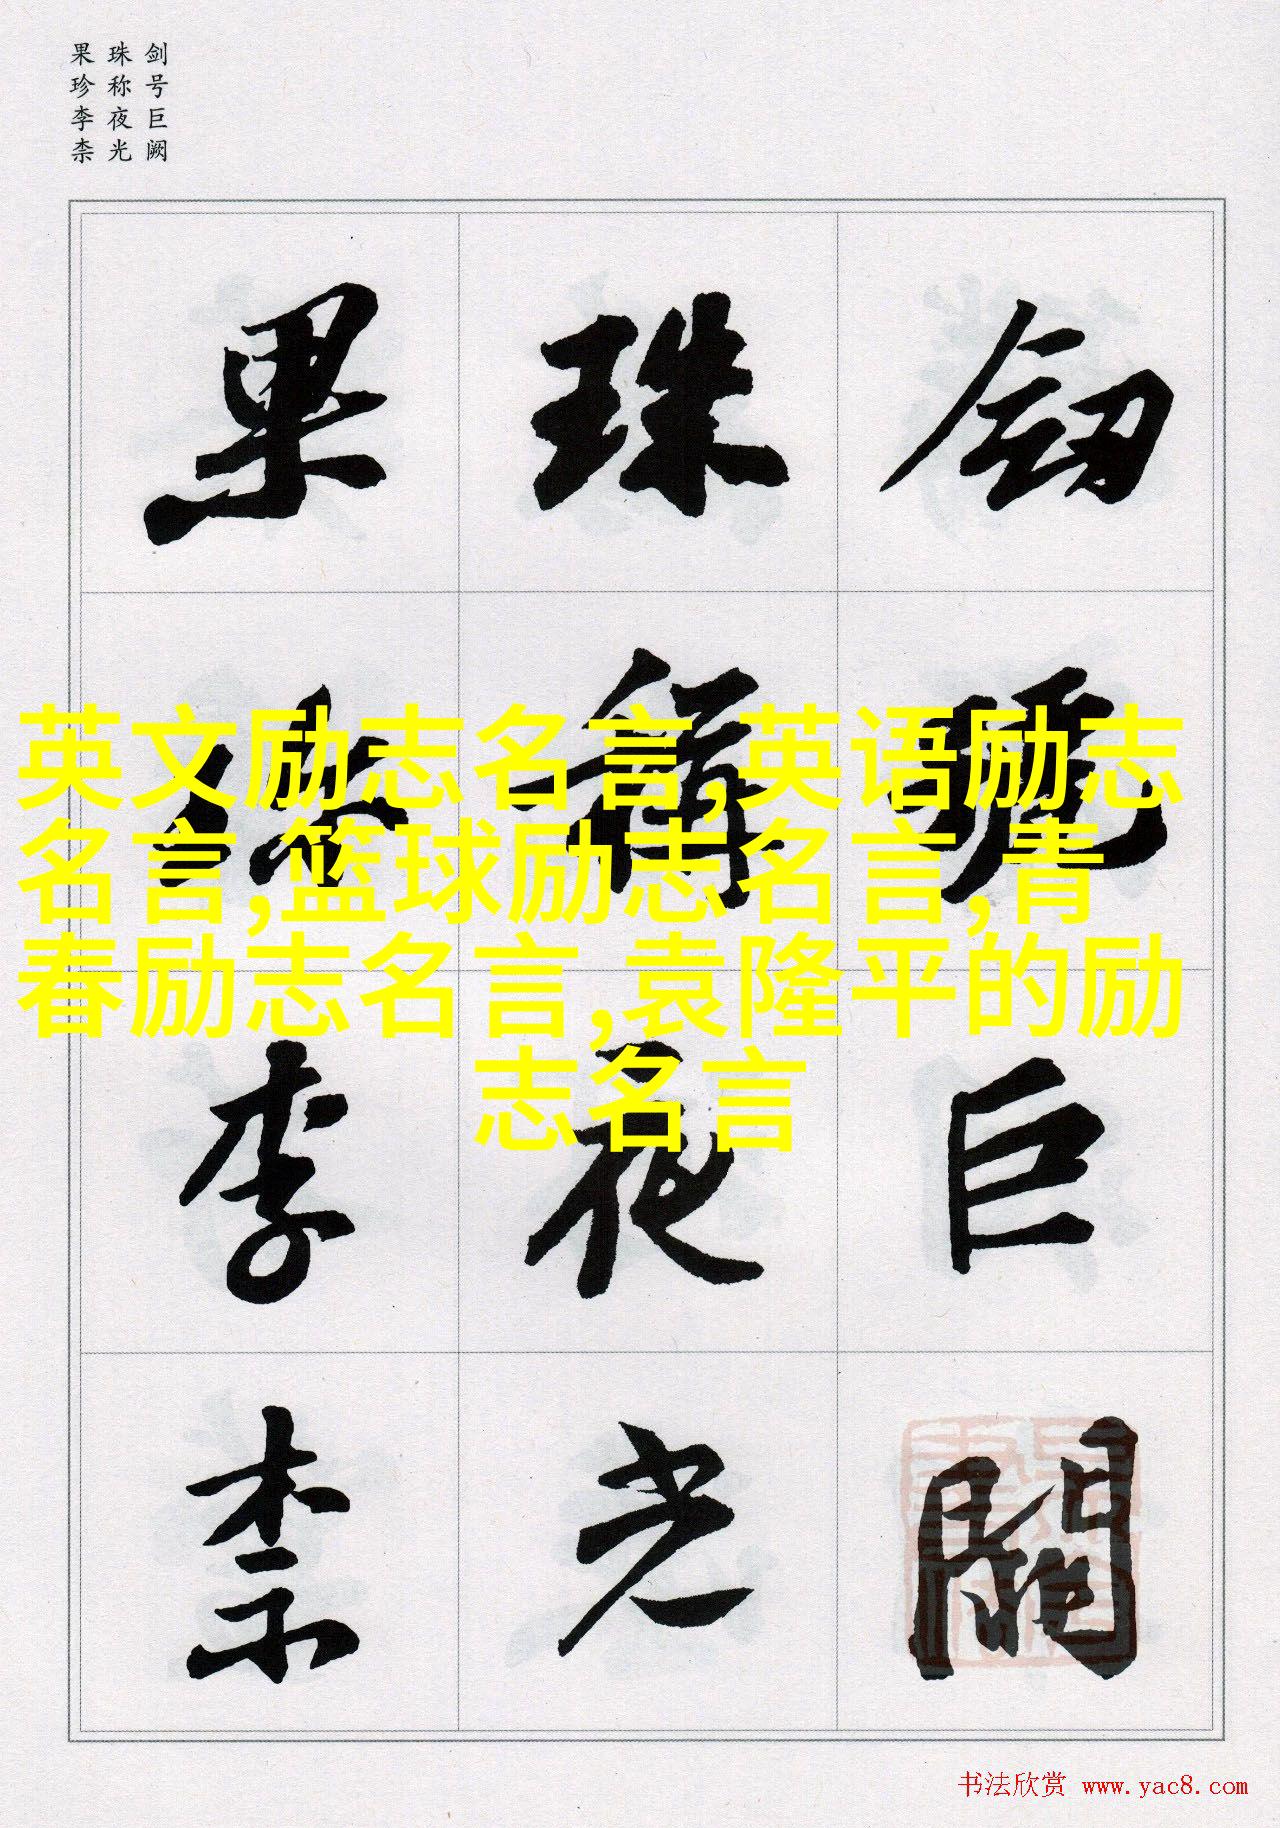 剑号巨阙
珠称夜光
果珍李柰
剑号巨阙
珠称夜光
果珍李柰
英文励志名言,英语励志
名言,篮球励志名言,青
春励志名言,袁隆平的励
志名言
书法欣赏 www.yac8.com